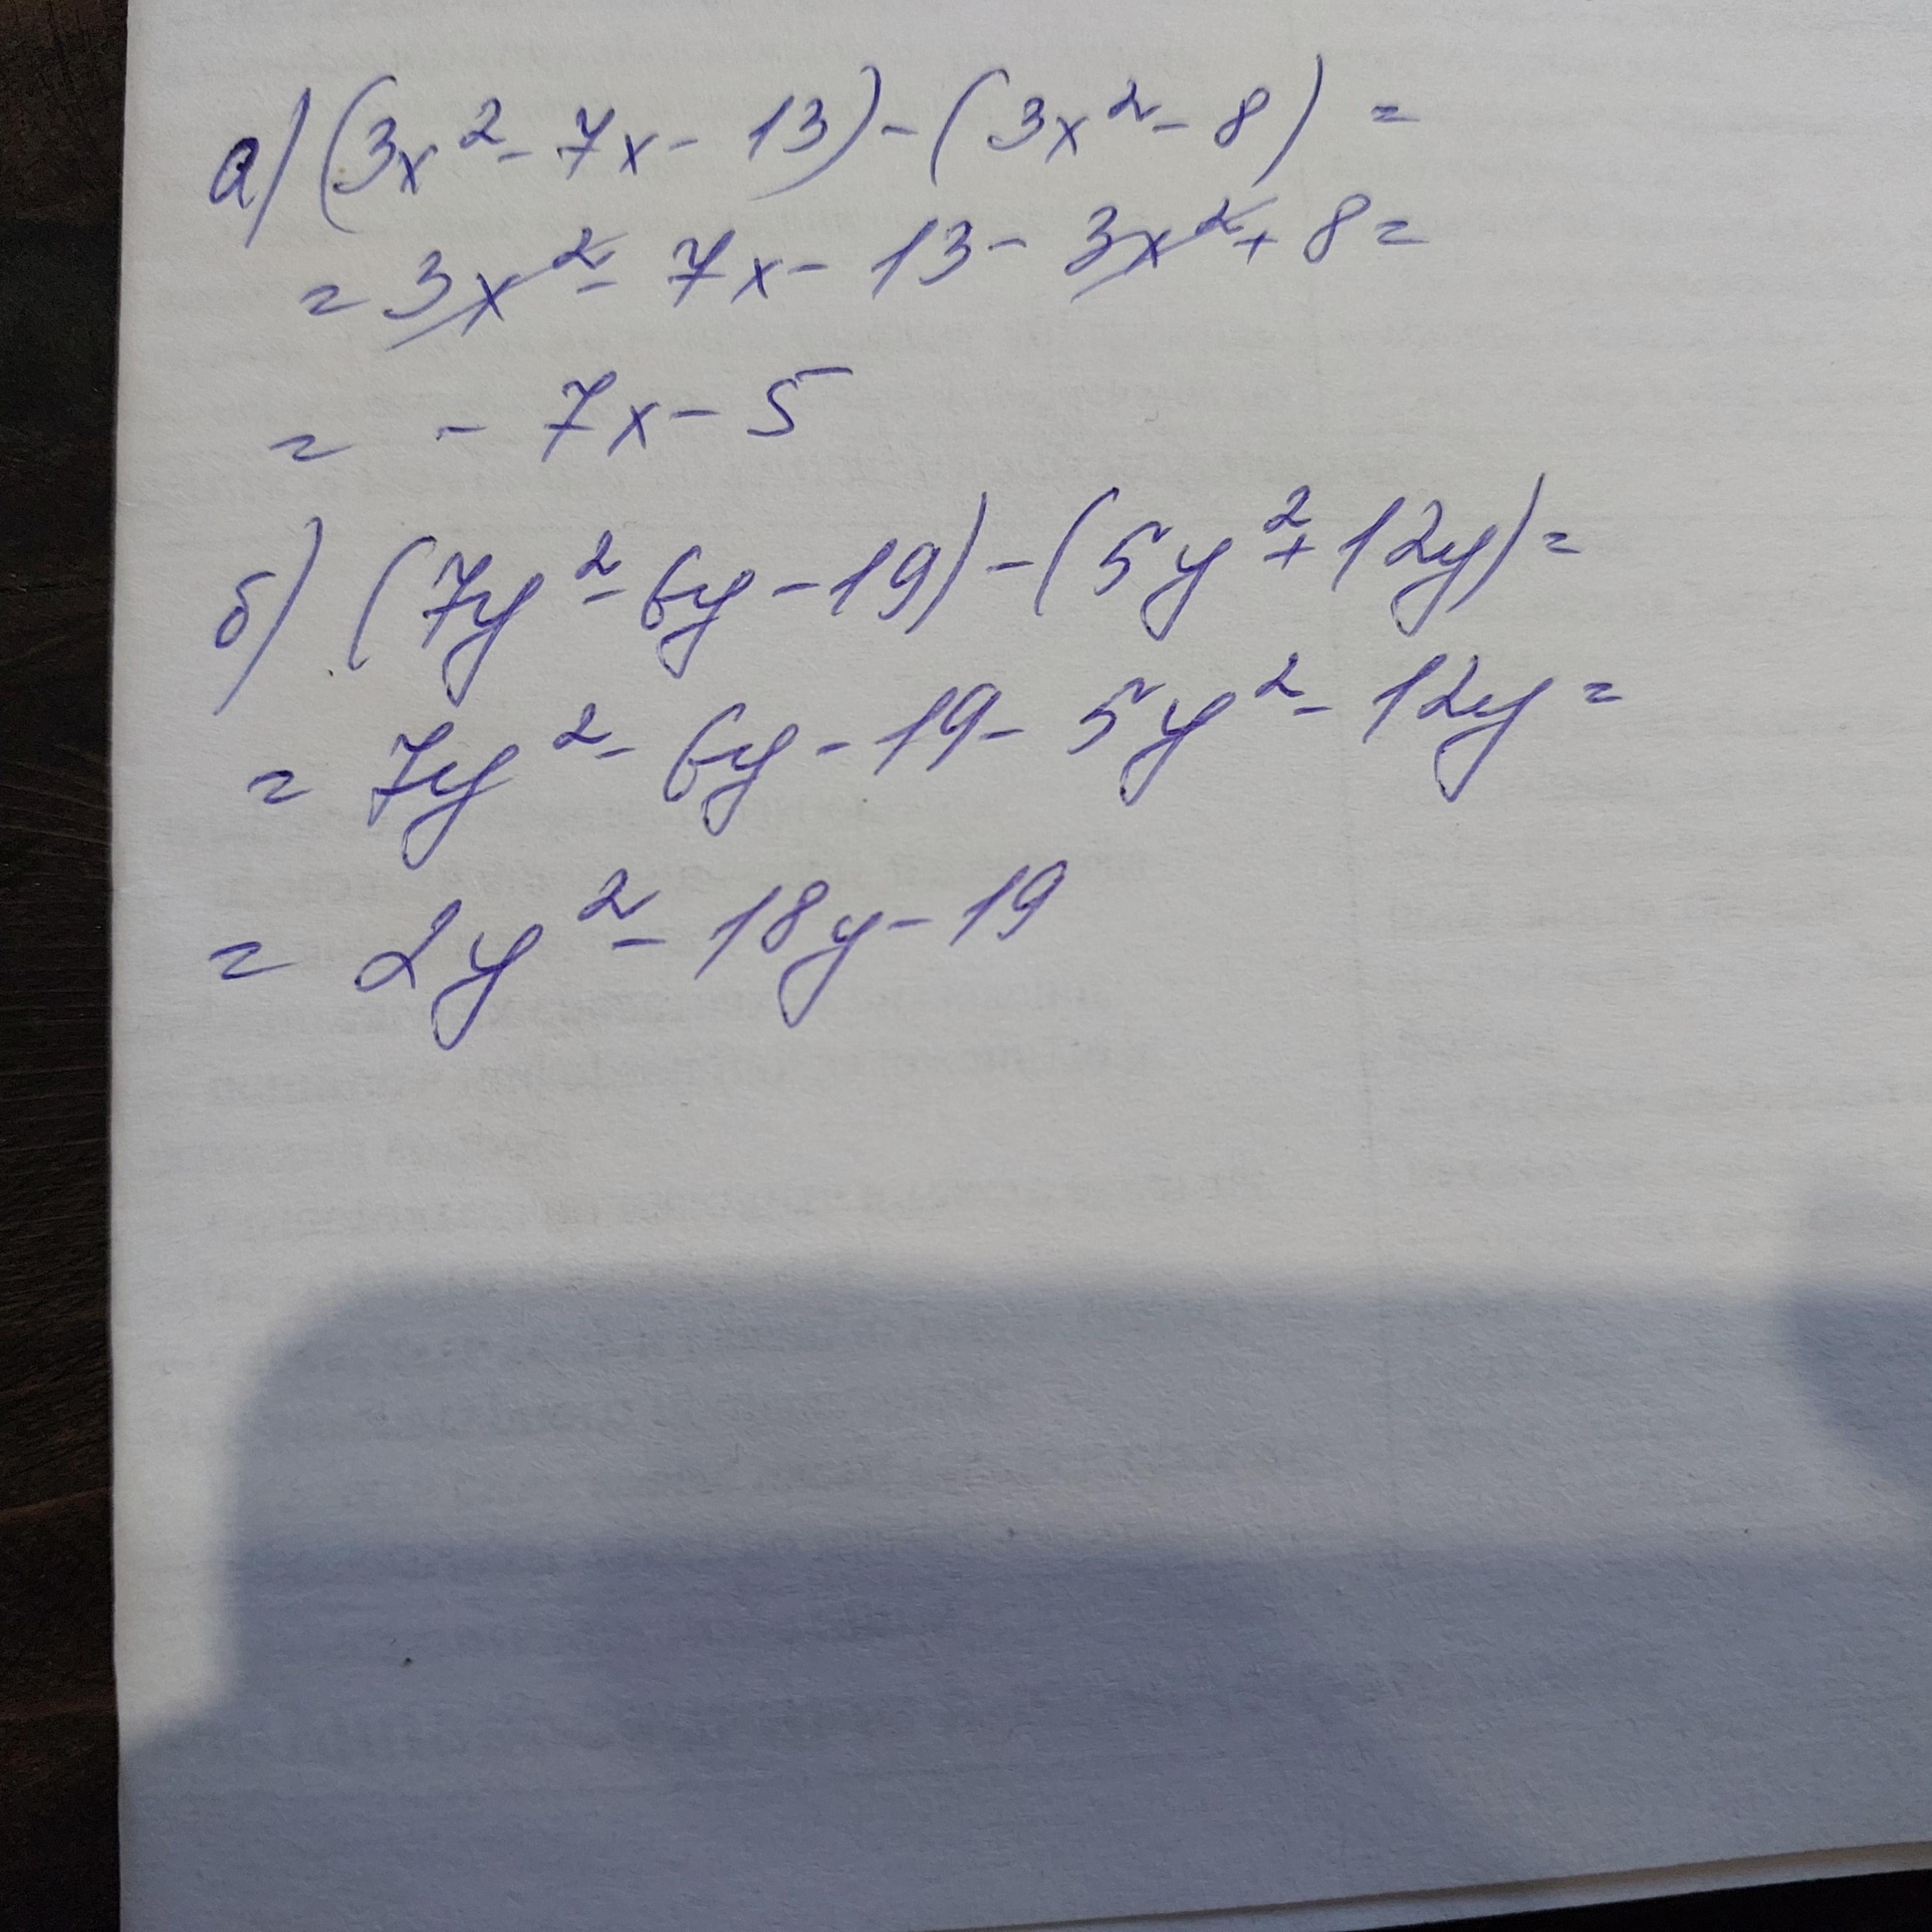 а) (3x² - 7x - 13) - (3x² - 8) =
= 3x² - 7x - 13 - 3x² + 8 =
= - 7x - 5
б) (7y² - 6y - 19) - (5y² + 12y) =
= 7y² - 6y - 19 - 5y² - 12y =
= 2y² - 18y - 19